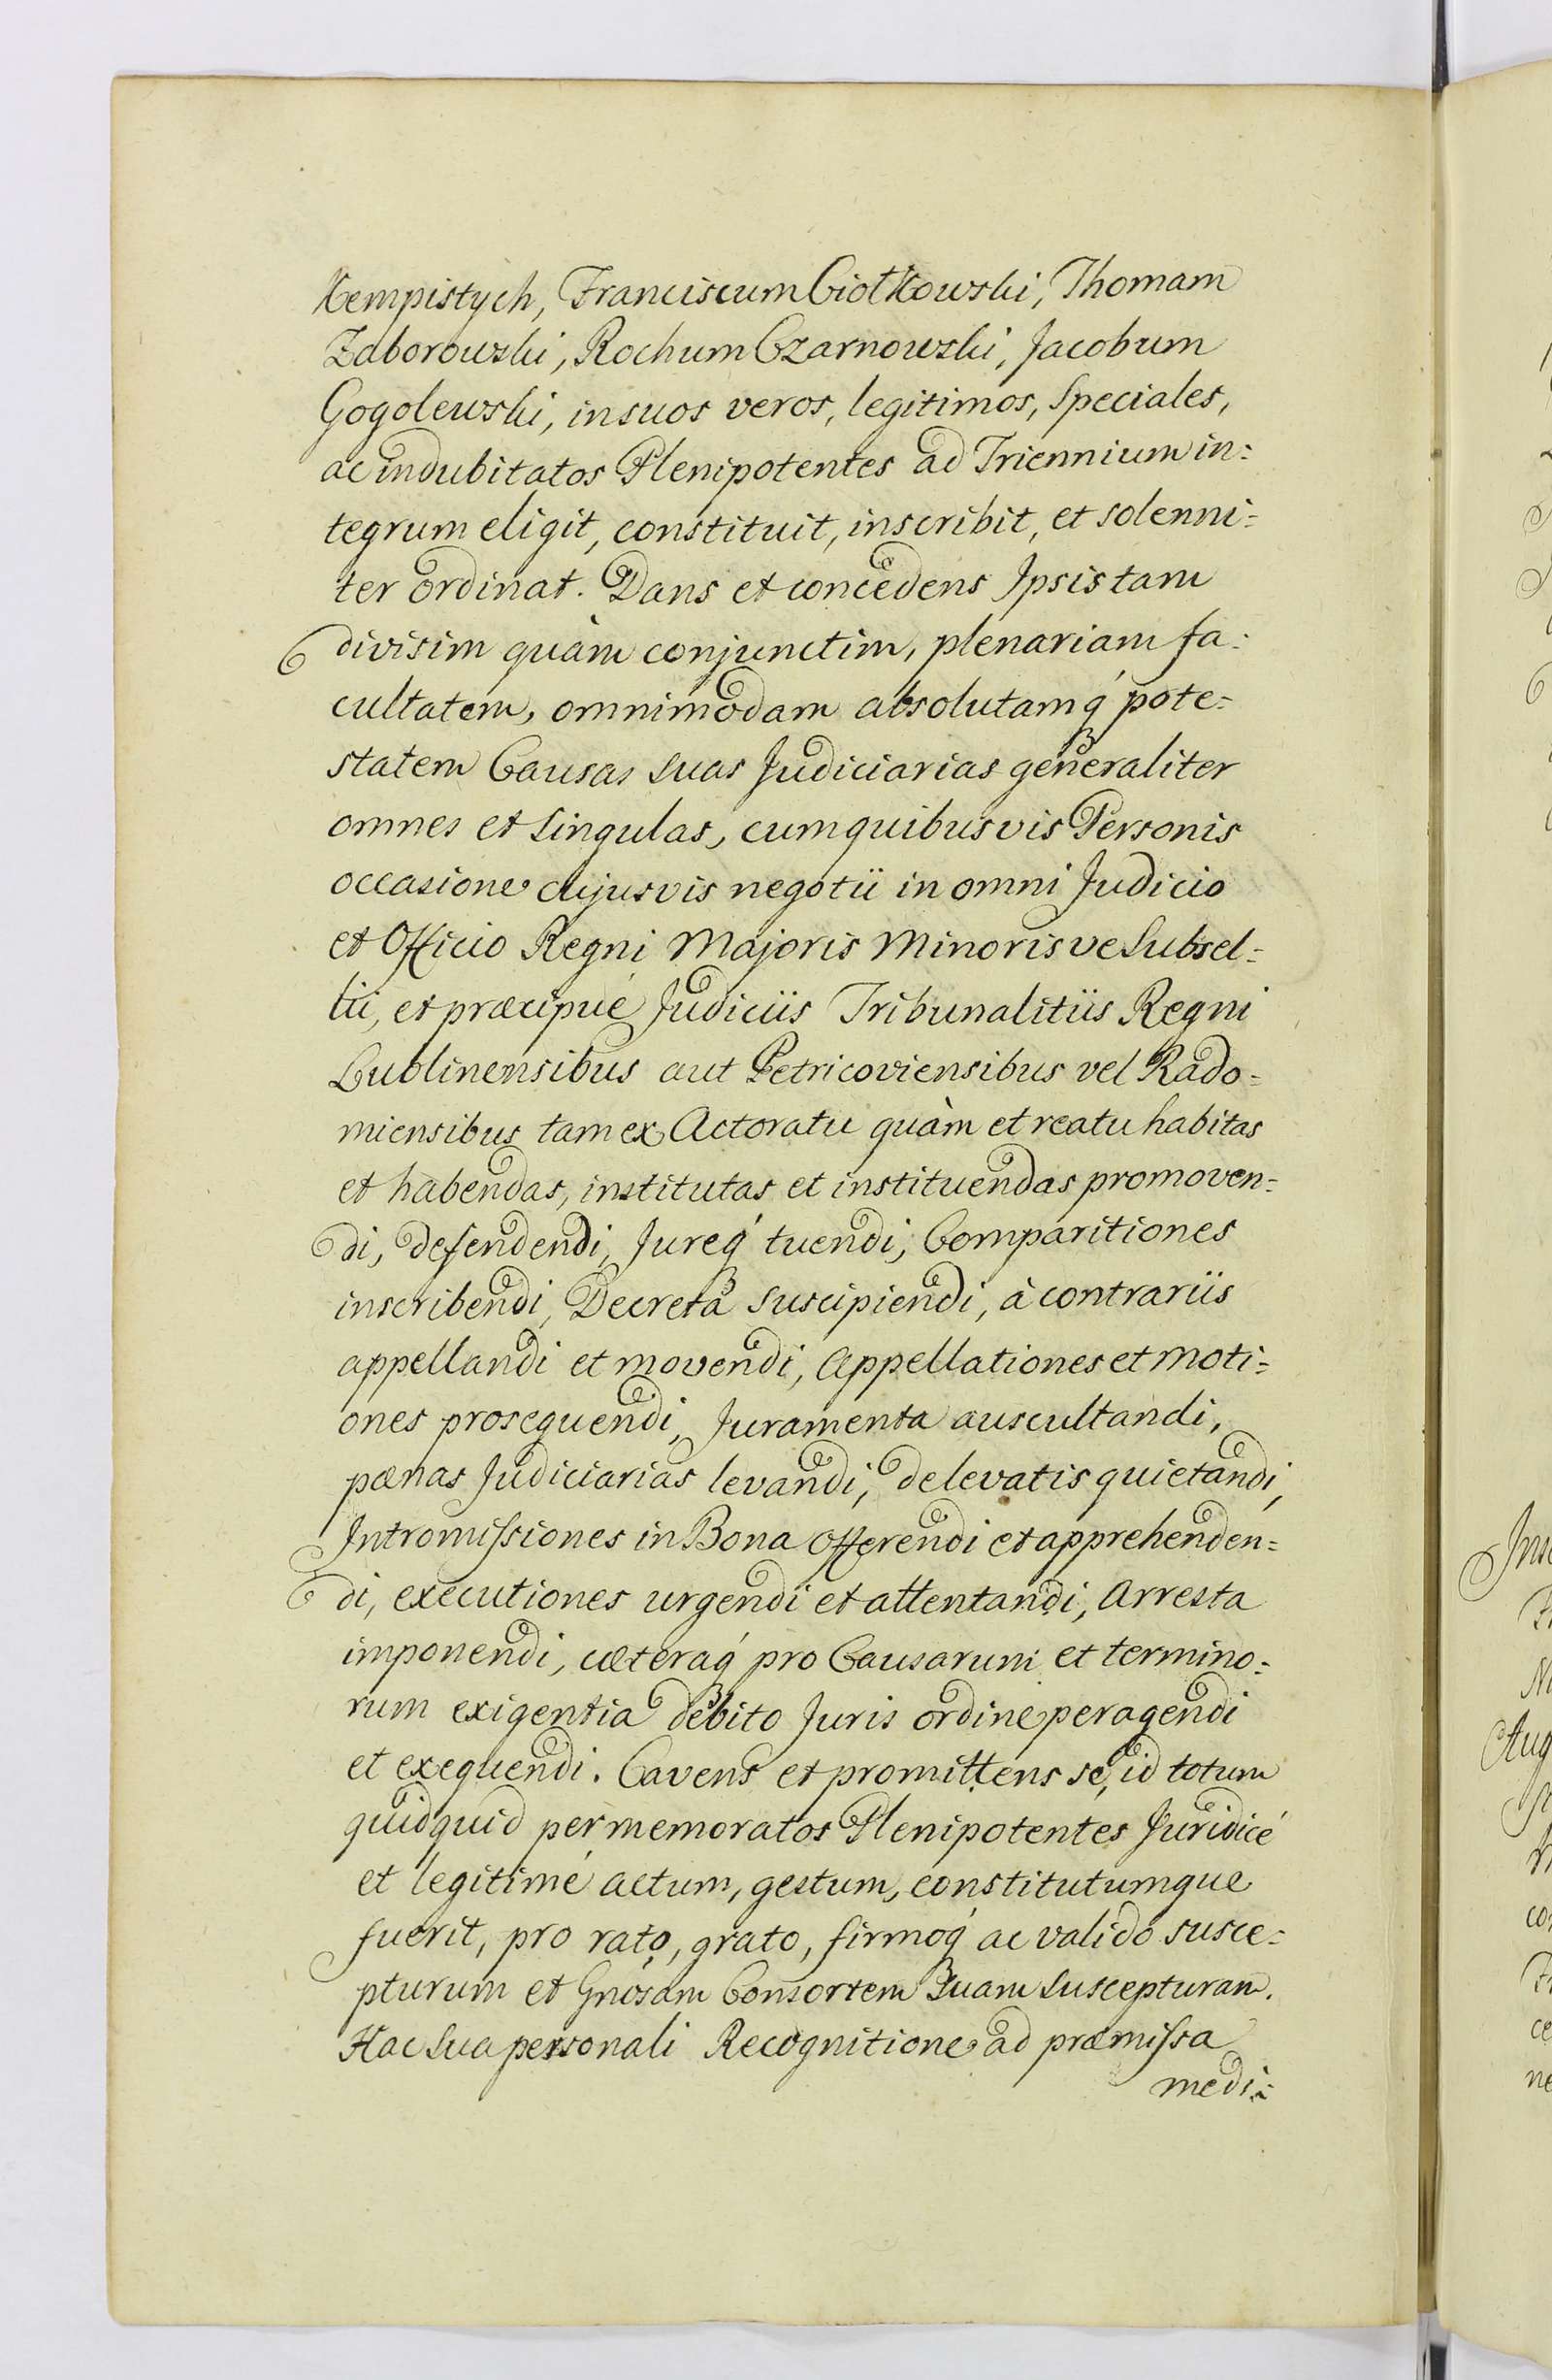 Kempistych, Franciscum Ciołkowski, Thomam
Zaborowski, Rochum Czarnowski, Jacobum
Gogolewski, in suos veros, legitimos, Speciales,
ac indubitatos Plenipotentes ad Triennium in=
tegrum eligit, constituit, inscribit, et solenni=
ter ordinat. Dans et concedens Ipsis tam
divisim quàm conjunctim, plenariam fa=
cultatem, omnimodam absolutamq́ pote=
statem Causas suas Judiciarias generaliter
omnes et singulas, cum quibusvis Personis
occasione cujusvis negotii in omni Judicio
et Officio Regni Majoris Minorisve Subsel=
lii, et præcipué Judiciis Tribunalitiis Regni
Lublinensibus aut Petricoviensibus vel Rado=
miensibus tam ex Actoratu quàm et reatu habitas
et habendas, institutas et instituendas promoven=
di, defendendi, Jureq́ tuendi, Comparitiones
inscribendi, Decreta suscipiendi, à contrariis
appellandi et movendi, Appellationes et moti=
ones prosequendi, Juramenta auscultandi,
pænas Judiciarias levandi, de levatis quietandi,
Intromissiones in Bona offerendi et apprehenden=
di, executiones urgendi et attentandi, Arresta
imponendi, cæteraq́ pro Causarum et termino=
rum exigentia debito Juris ordine peragendi
et exequendi. Cavens et promittens se, id totum
quidquid per memoratos Plenipotentes Juridicé
et legitimé actum, gestum, constitutumque
fuerit, pro rato, grato, firmoq́ ac valido susce=
pturum et Gnosam Consortem Suam suscepturam.
Hac sua personali Recognitione ad præmissa
medi=